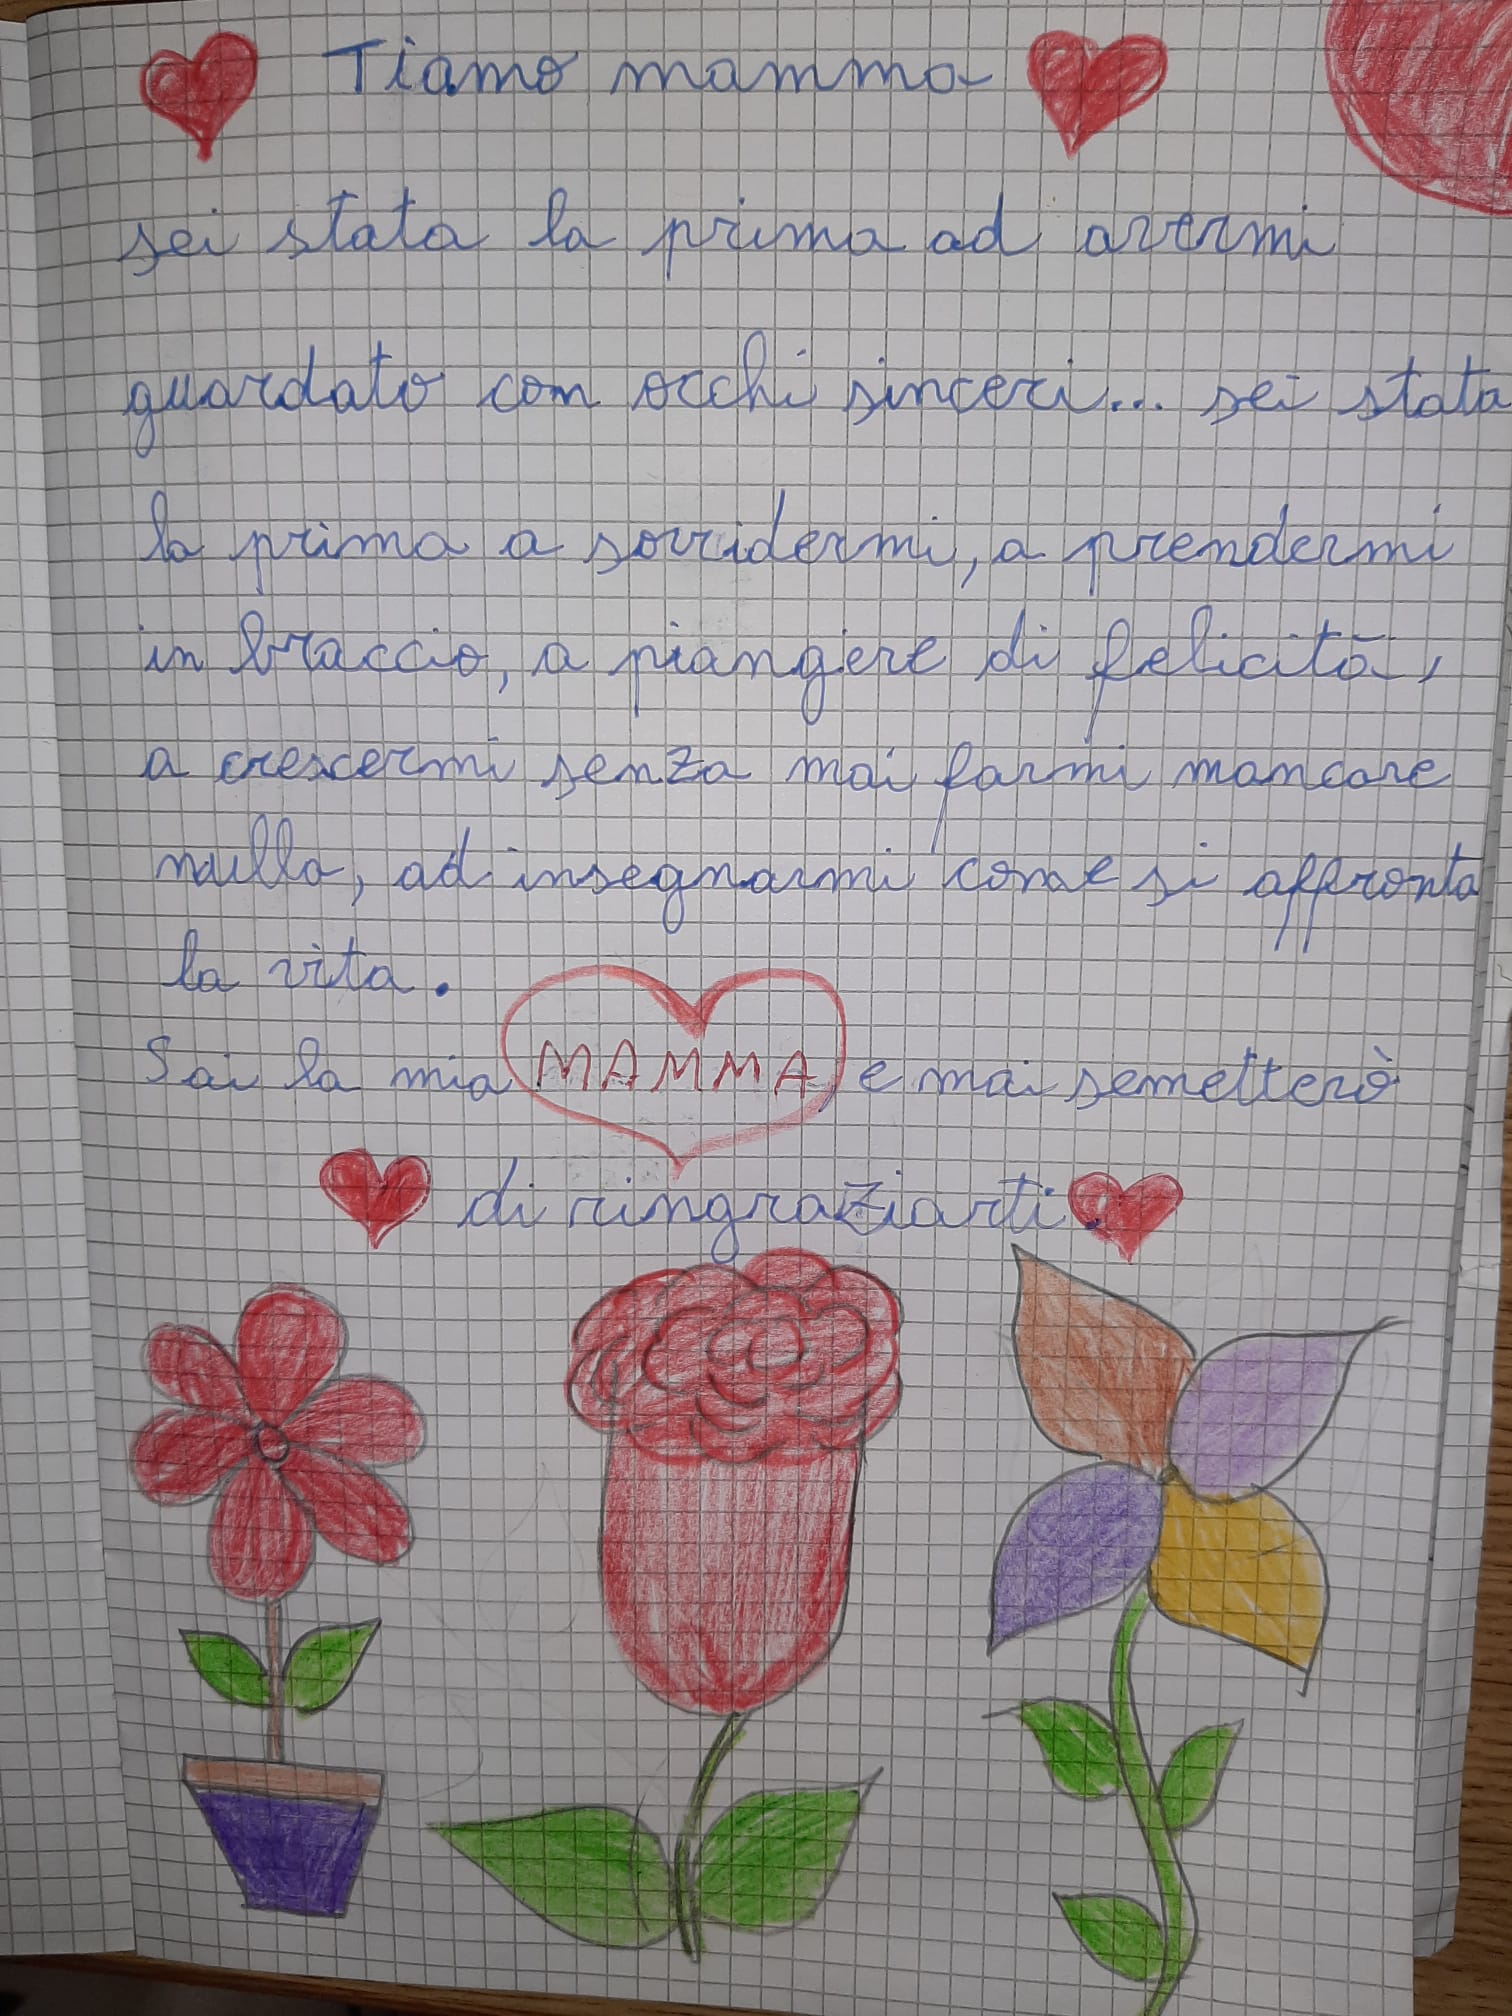 Tiamo mamma
sei stata la prima ad avermi
guardato con occhi sinceri... sei stata
la prima a sorridermi, a prendermi
in braccio, a piangere di felicità,
a crescermi senza mai farmi mancare
nulla, ad insegnarmi come si affronta
la vita.
Sai la mia MAMMA, e mai semetterò
di ringraziarti.